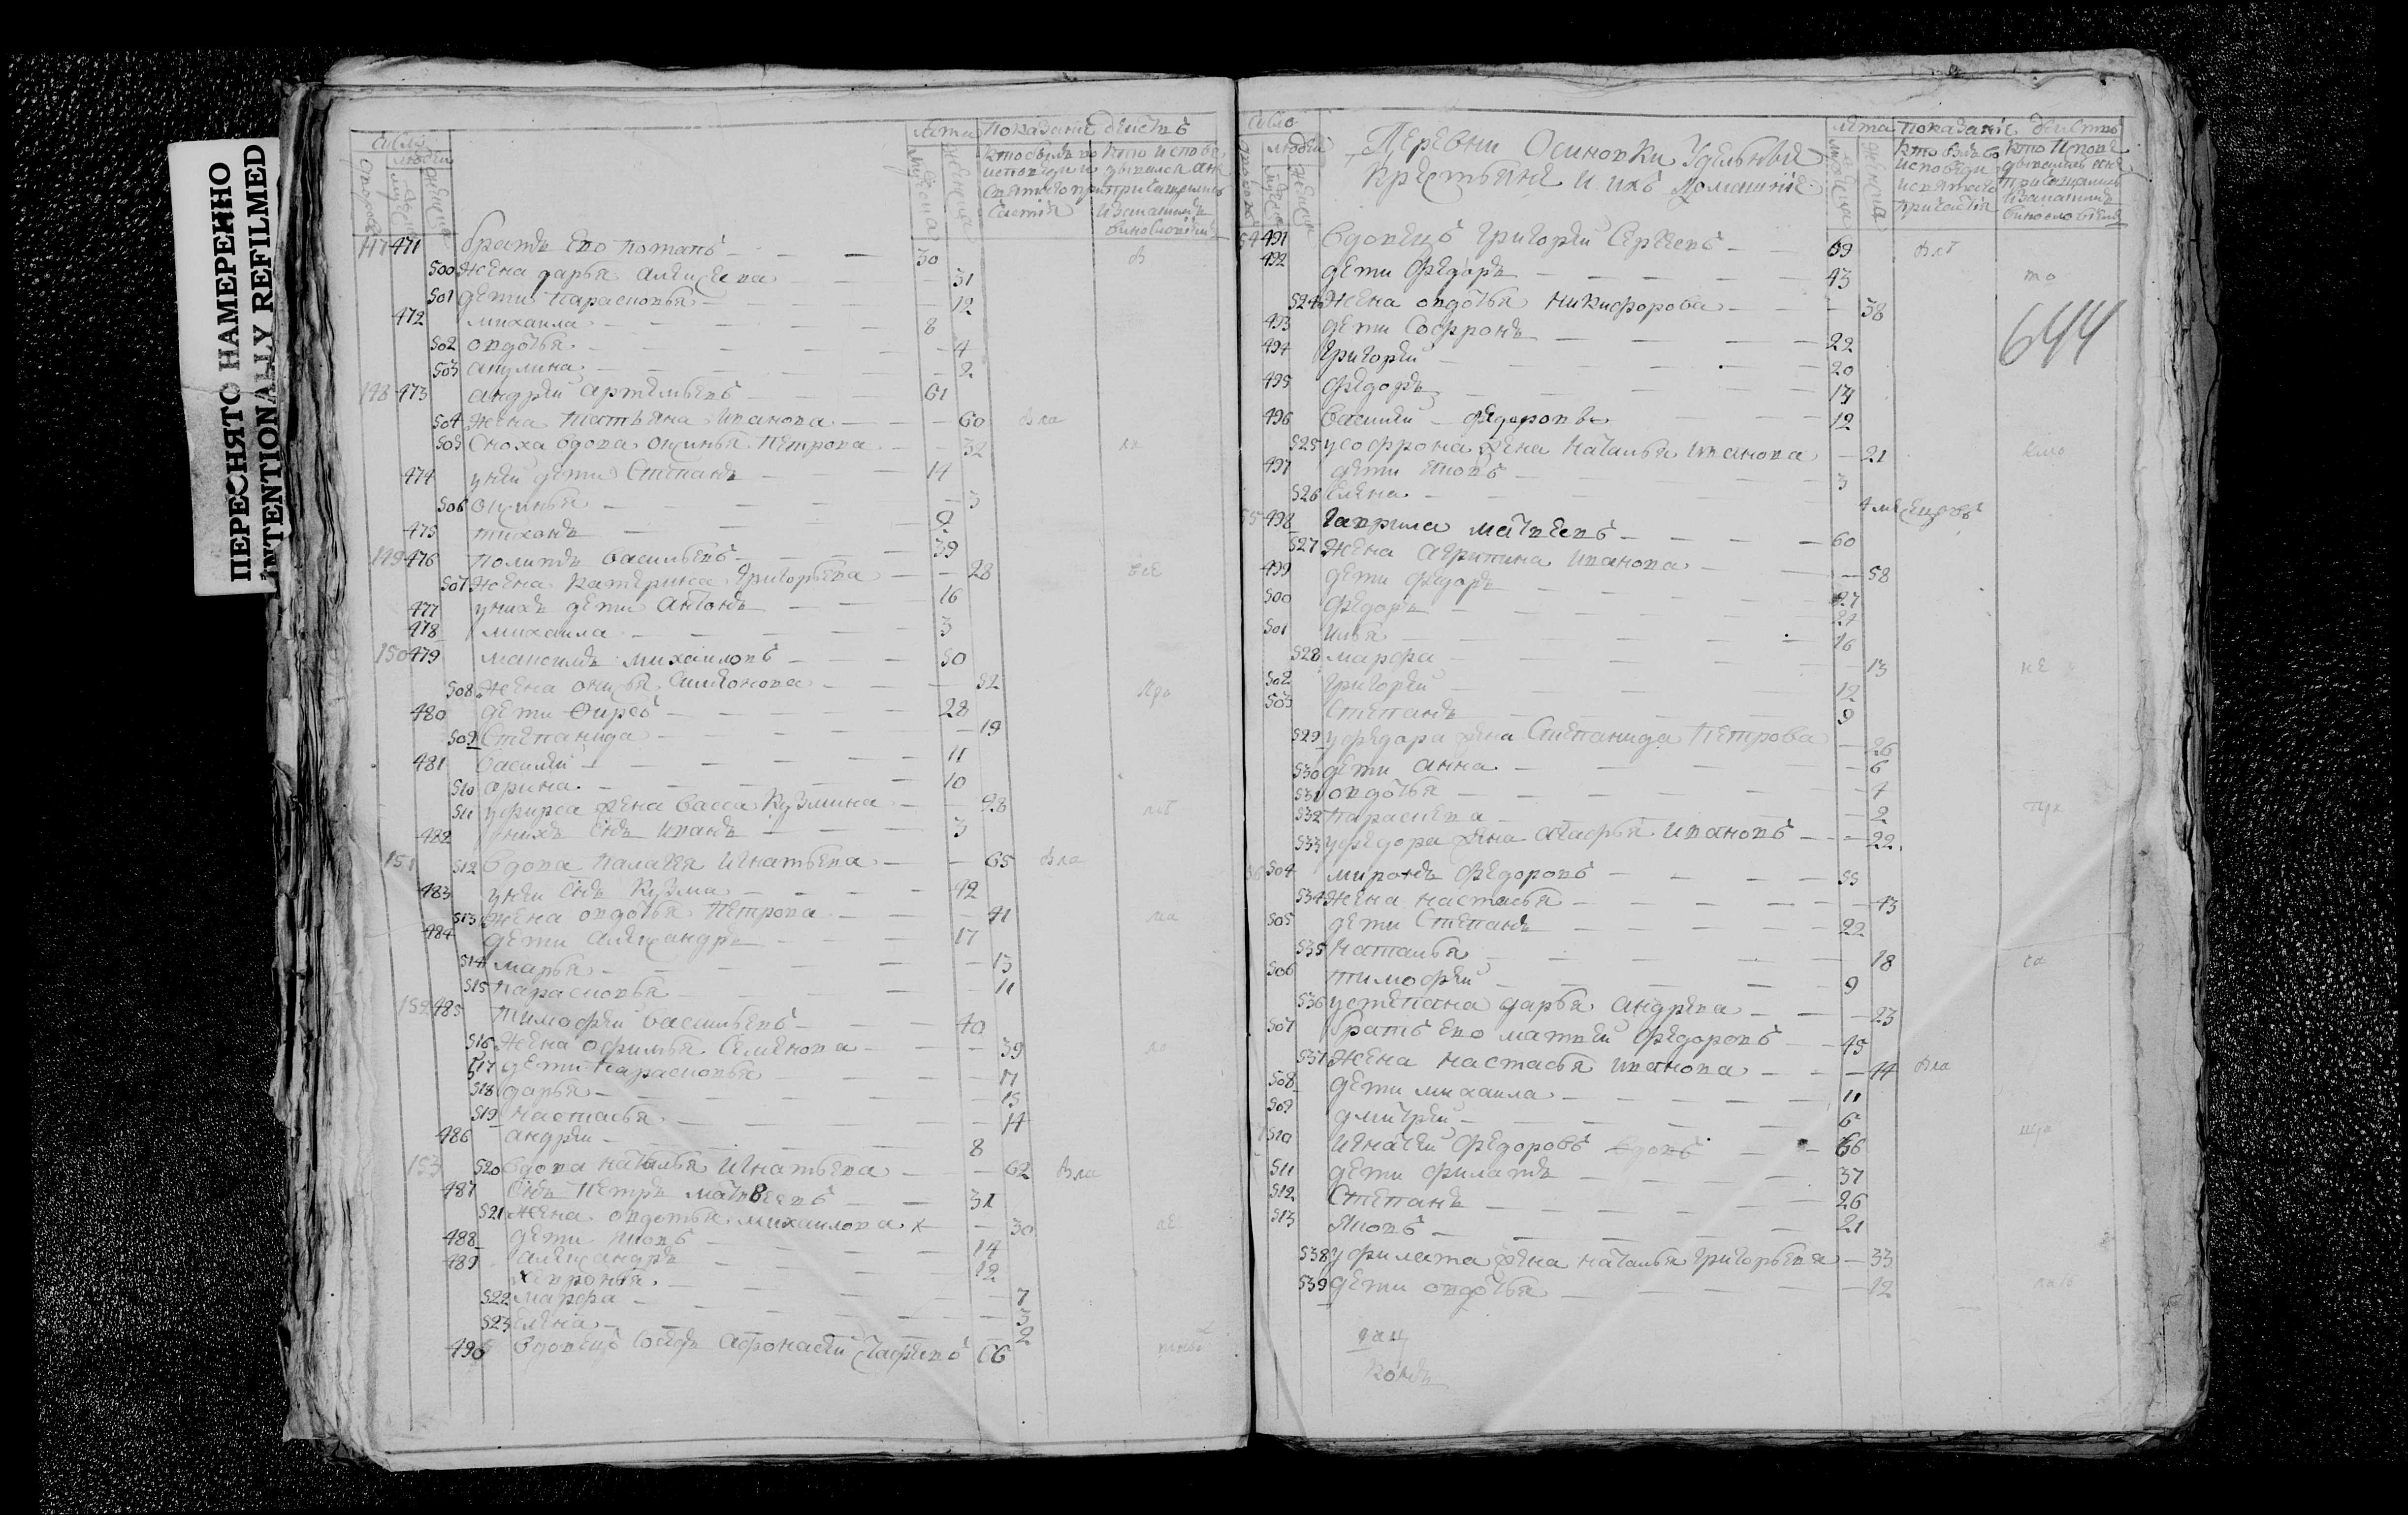 ПЕРЕСНЯТО НАМЕРЕННО
INTENTIONALLY REFILMED
число
людей
лета показание действъ
147 471 братъ ево потапъ 30
500 жена дарья алексеева 31
501 дети парасковья 12
472 михаила 8
502 овдотья 4
503 акулина 2
148 473 андрей артемьевъ 61
504 жена татьяна иванова 60
505 сноха вдова оксинья петрова 32
474 у ней дети степанъ 14
506 оксинья 3
475 тихонъ 9
149 476 поликтъ васильевъ 39
507 жена катерина григорьева 28
477 у нихъ дети антонъ 16
478 михаила 3
150 479 максимъ михаиловъ 50
508 жена симионова 52
480 дети фирсъ 28
509 степанида 19
481 василей 11
510 орина 10
511 у фирса жена васса кузмина 28
482 у нихъ снъ иванъ 3
151 512 вдова палагея игнатьева 65
483 у ней снъ кузма 42
513 жена овдотья петрова 41
484 дети александръ 17
514 марья 13
515 парасковья 11
152 485 тимофей васильевъ 40
516 жена офимья семенова 39
517 дети парасковья 17
518 дарья 15
519 настасья 14
486 андрей 8
153 520 вдова наталья игнатьева 62
487 снъ петръ матвеевъ 31
521 жена овдотья михаилова 30
488 дети иовъ 14
489 александръ 12
хавронья 7
522 марфа 3
523 елена 2
490 вдовецъ афонасей 66
число
людей
Деревни Осиновки Удельныя
крестьяне и ихъ домашние
лета показание действъ
54 491 вдовецъ григорей сергеевъ 69
492 дети федоръ 43
524 жена овдотья никифорова 38
644
493 дети софронъ 22
494 григорей 20
495 федоръ 14
496 василей федоровы 12
525 у софрона жена наталья иванова 21
497 дети иовъ 3
526 елена 4 месецовъ
55 498 гаврила матвеевъ 60
527 жена агрипина иванова 58
499 дети федоръ 27
500 федоръ 24
501 илья 16
528 марфа 13
502 григорей 12
503 степанъ 9
529 у федора жена степанида петрова 26
530 дети анна 6
531 овдотья 4
532 параскева 2
533 у федора жена агафья ивановъ 22
56 504 миронъ федоровъ 55
534 жена настасья 43
505 дети степанъ 22
535 наталья 18
506 тимофей 9
536 у степана дарья андреева 23
507 братъ ево матвей федоровъ 45
537 жена настасья иванова 44
508 дети михаила 11
509 дмитрей 6
510 игнатей федоровъ вдовъ 66
511 дети филатъ 37
512 степанъ 26
513 иовъ 21
538 у филата жена наталья григорьева 33
539 дети овдотья 12